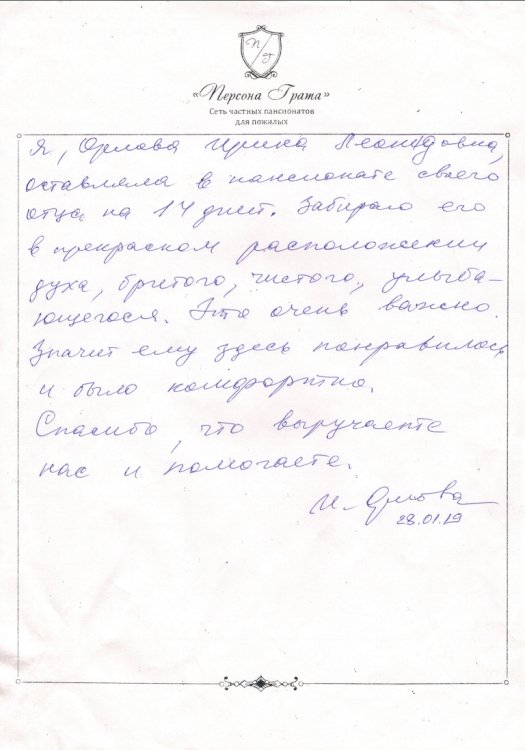 П/Г
«Персона Грата»
Сеть частных пансионатов
для пожилых
Я, Орлова Ирина Леонидовна,
оставляла в пансионате своего
отца на 14 дней. Забираю его
в прекрасном расположении
духа, бритого, чистого, улыба-
ющегося. Это очень важно.
Значит ему здесь понравилось
и было комфортно.
Спасибо, что выручаете
нас и помогаете.
И. Орлова
28.01.19